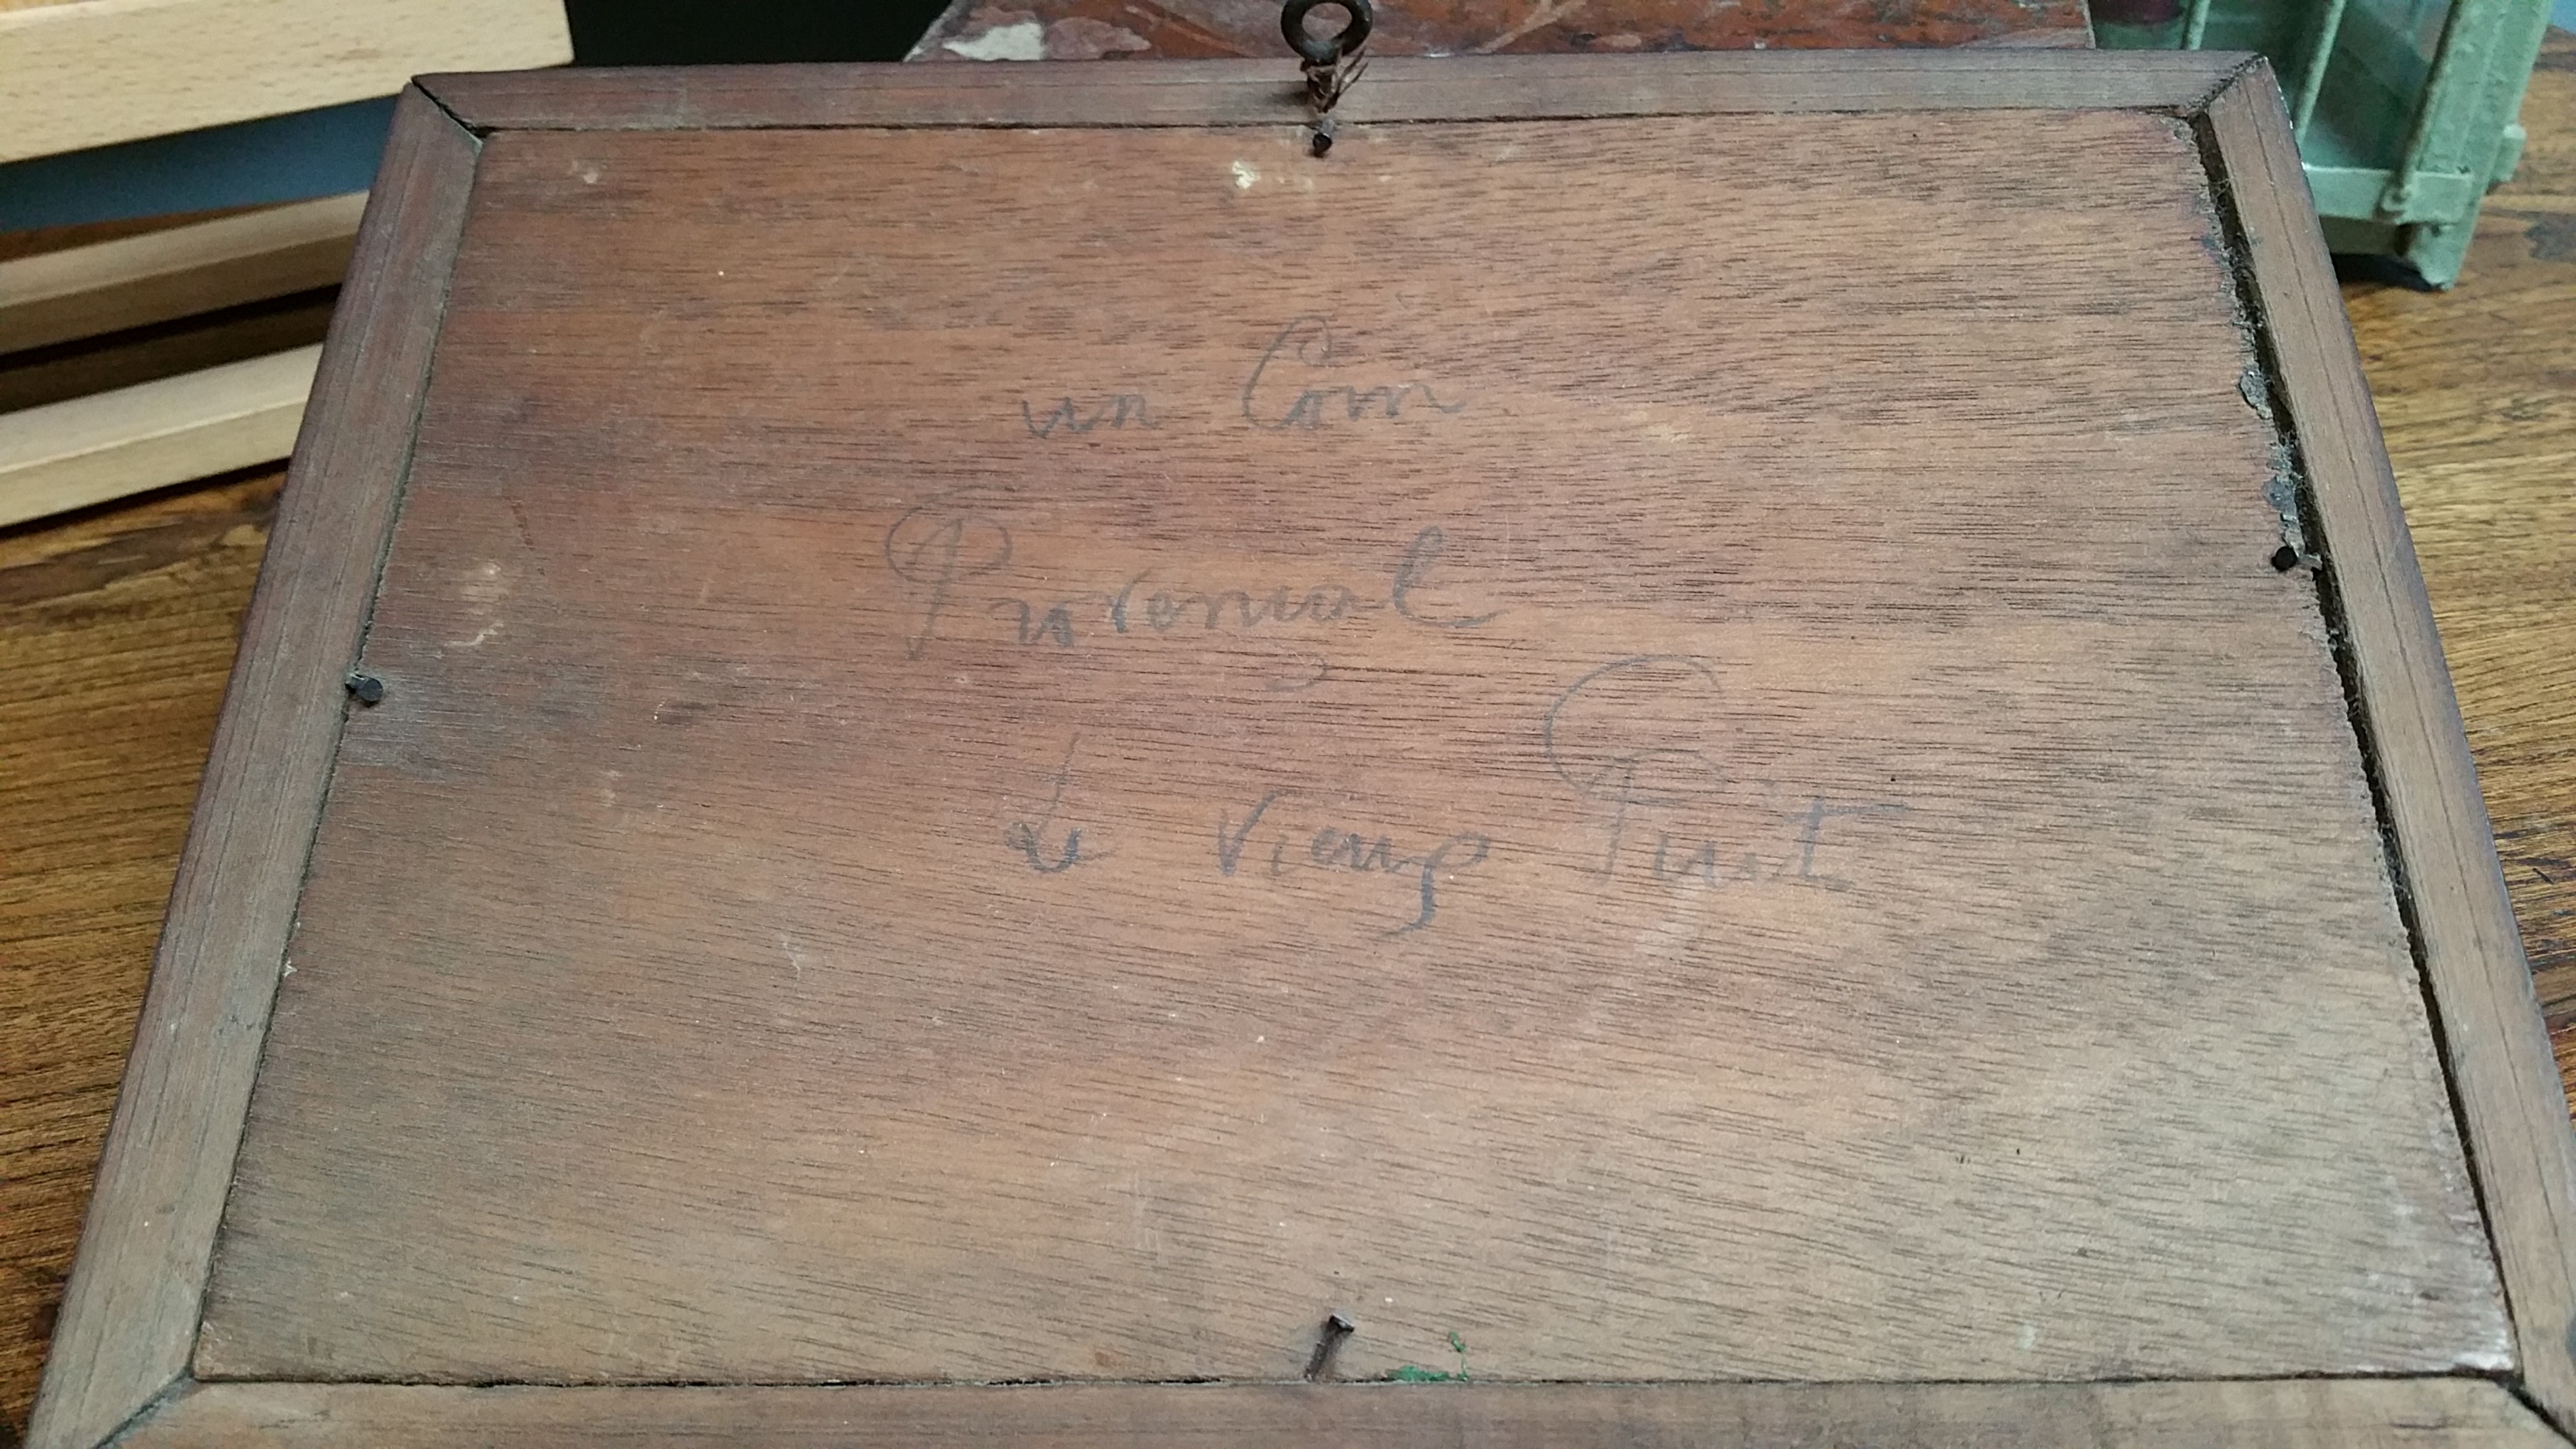 un Coin
Provençal
Le vieux Puit